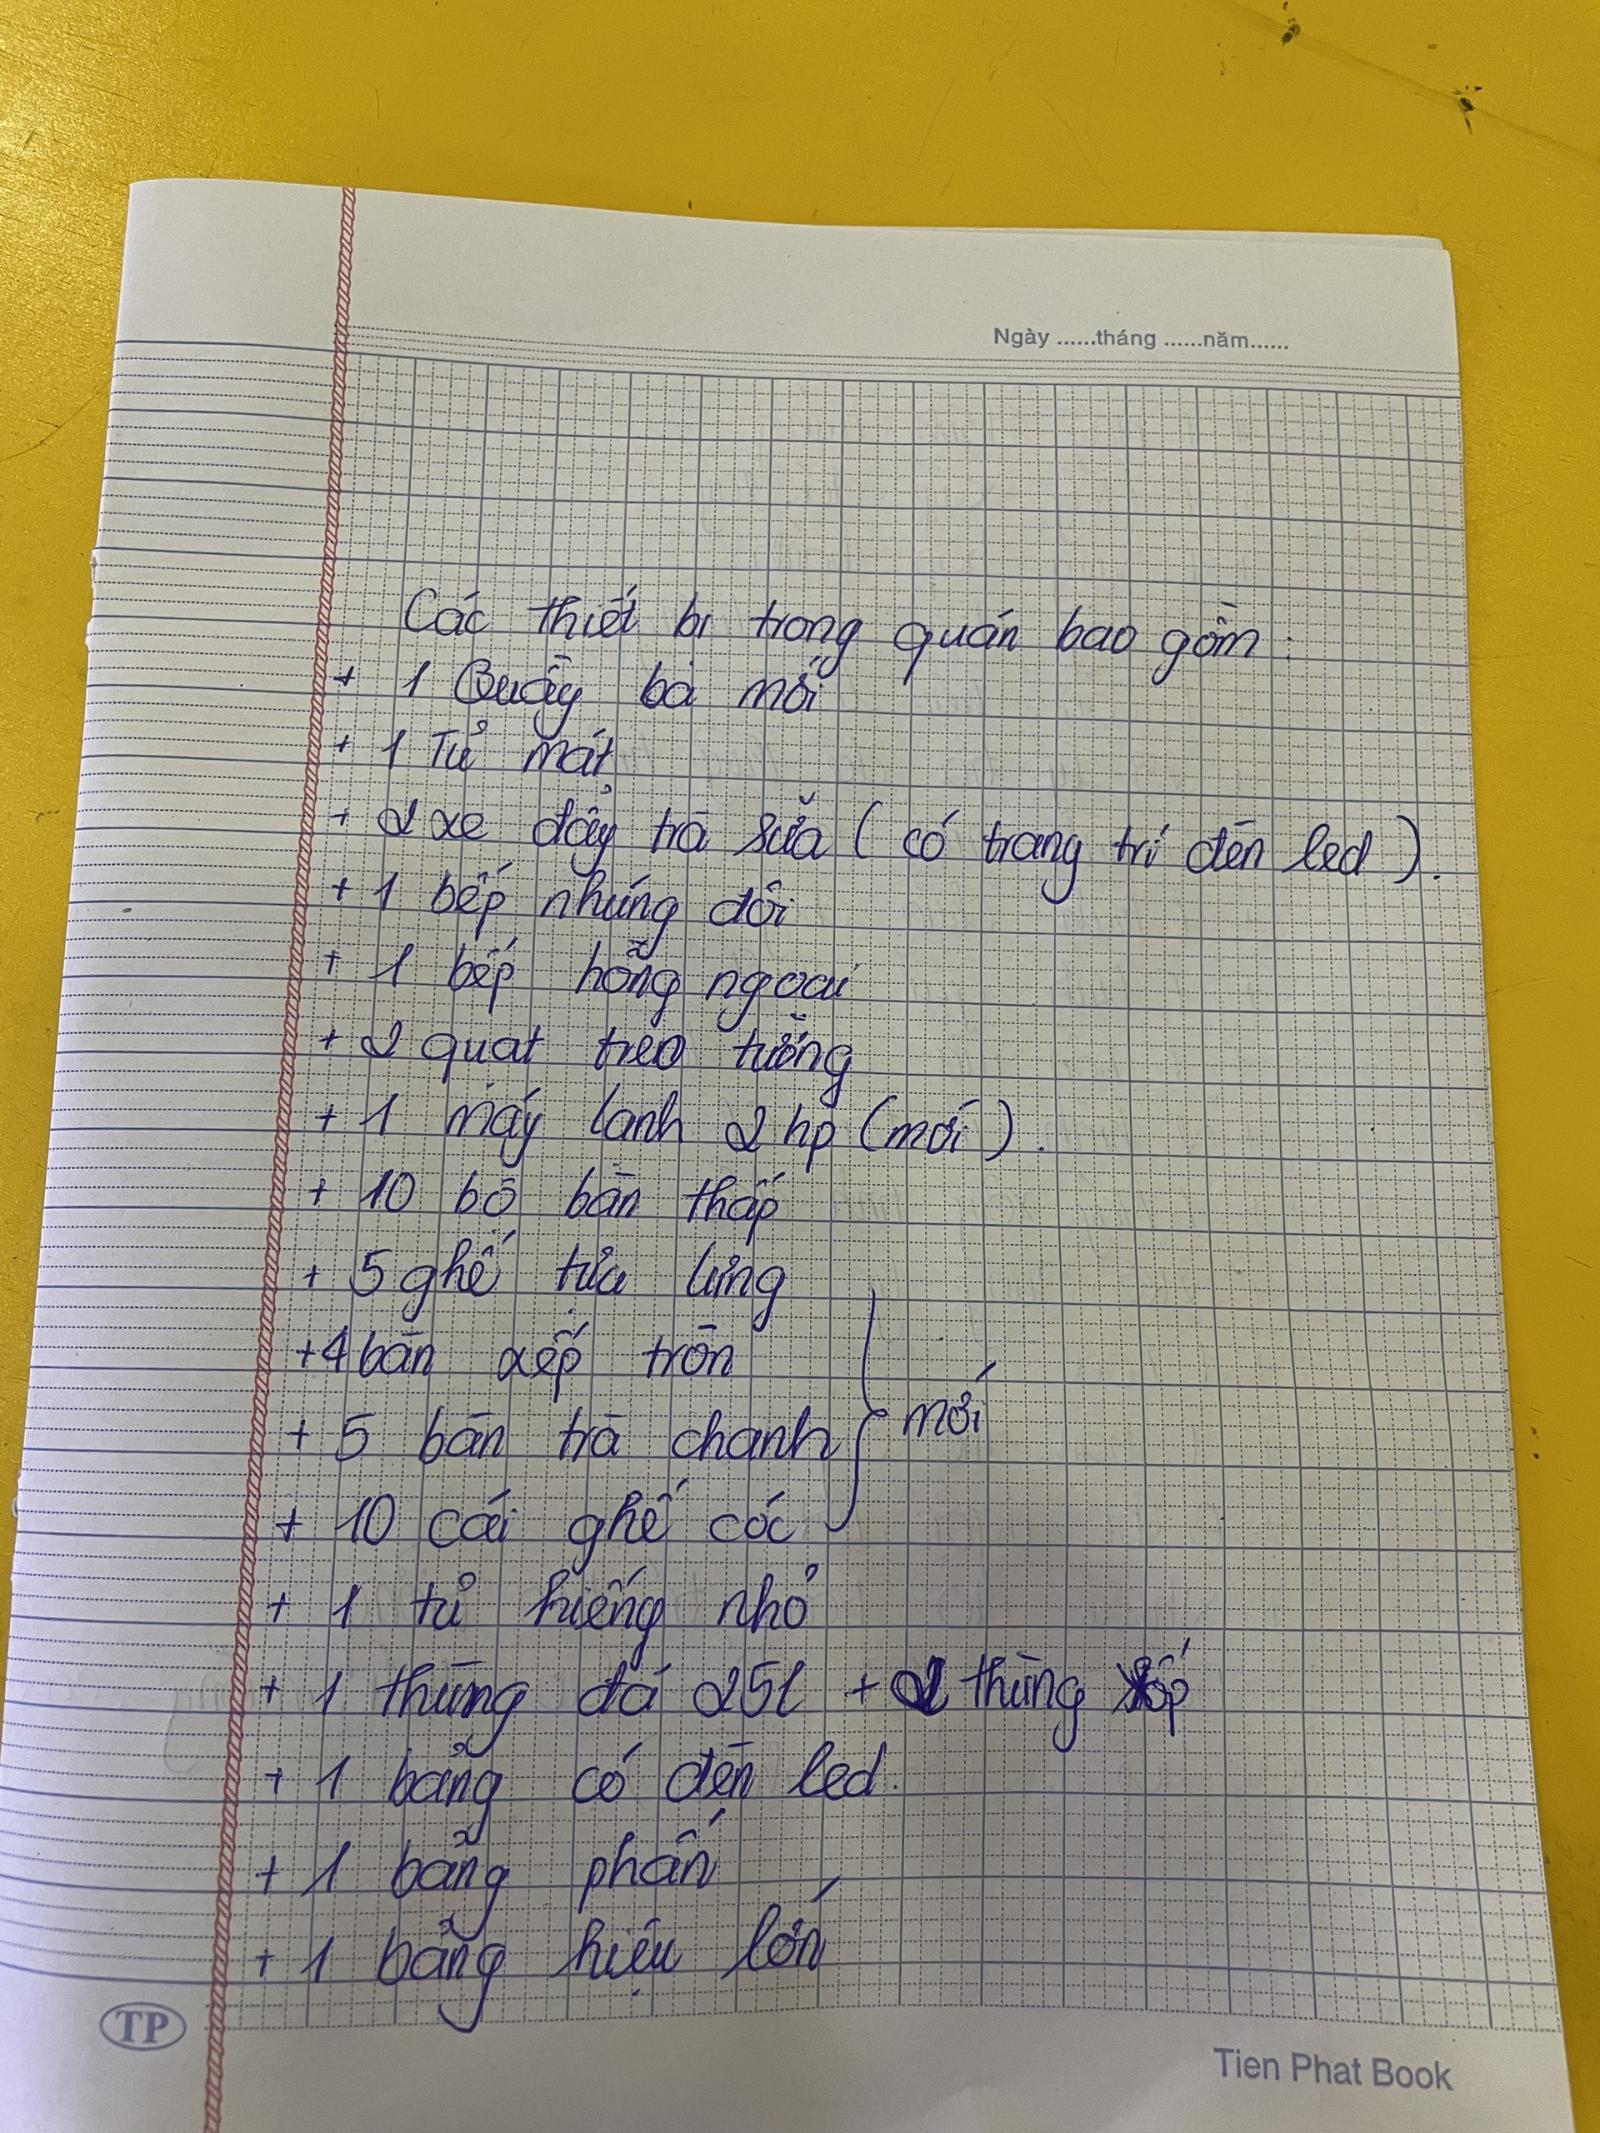 Ngày ......tháng ......năm......
Các thiết bị trong quán bao gồm:
+ 1 Quầy ba mới
+ 1 Tủ mát
+ 2 xe đẩy trà sữa ( có trang trí đèn led ).
+ 1 bếp nhúng đôi
+ 1 bếp hồng ngoại
+ 2 quạt treo tường
+ 1 máy lạnh 2 hp (mới).
+ 10 bộ bàn thấp
+ 5 ghế tựa lưng
+4 bàn xếp tròn
+ 5 bàn trà chanh
mới
+ 10 cái ghế cóc
+ 1 tủ kiếng nhỏ
+ 1 thùng đá 25l + 2 thùng xốp
+ 1 bảng có đèn led.
+ 1 bảng phấn
+ 1 bảng hiệu lớn
TP
Tien Phat Book